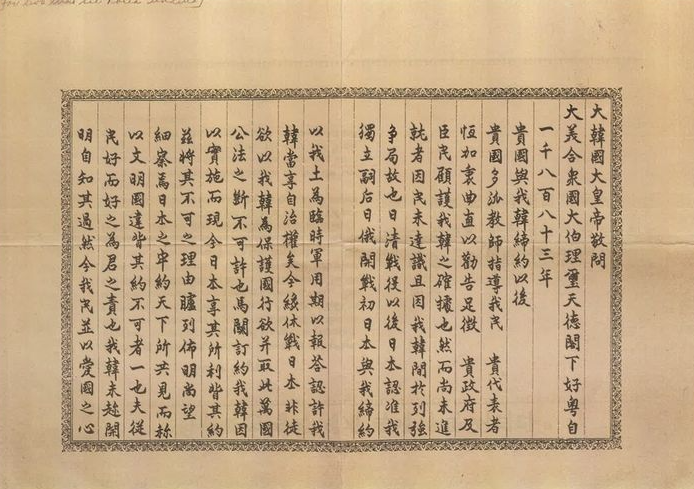 大韓國大皇帝敬問
大美合衆國大伯理璽天德閣下好粤自
一千八百八十三年
貴國與我韓締約以後
貴國多派教師指導我民 貴代表者
恆加衷曲直以勸告足徵 貴政府及
臣民顧護我韓之確據也然而尚未進
就者因民未達識且因我韓閒於列强
爭局故也日淸戰役以後日本認准我
獨立嗣后日俄開戰初日本與我締約
以我土爲臨時軍用期以報答認許我
韓當享自治權矣今終休戰日本非徒
欲以我韓爲保護國行欲并取此萬國
公法之斷不可許也馬關訂約我韓因
以實施而現今日本享其所利背其約
茲將其不可之理由臚列佈明尚望
細察焉日本之牢約天下所共見而稱
以文明國違背其約不可者一也夫從
民好而好之爲君之責也我韓未趁開
明自知其過然今我民並以愛國之心